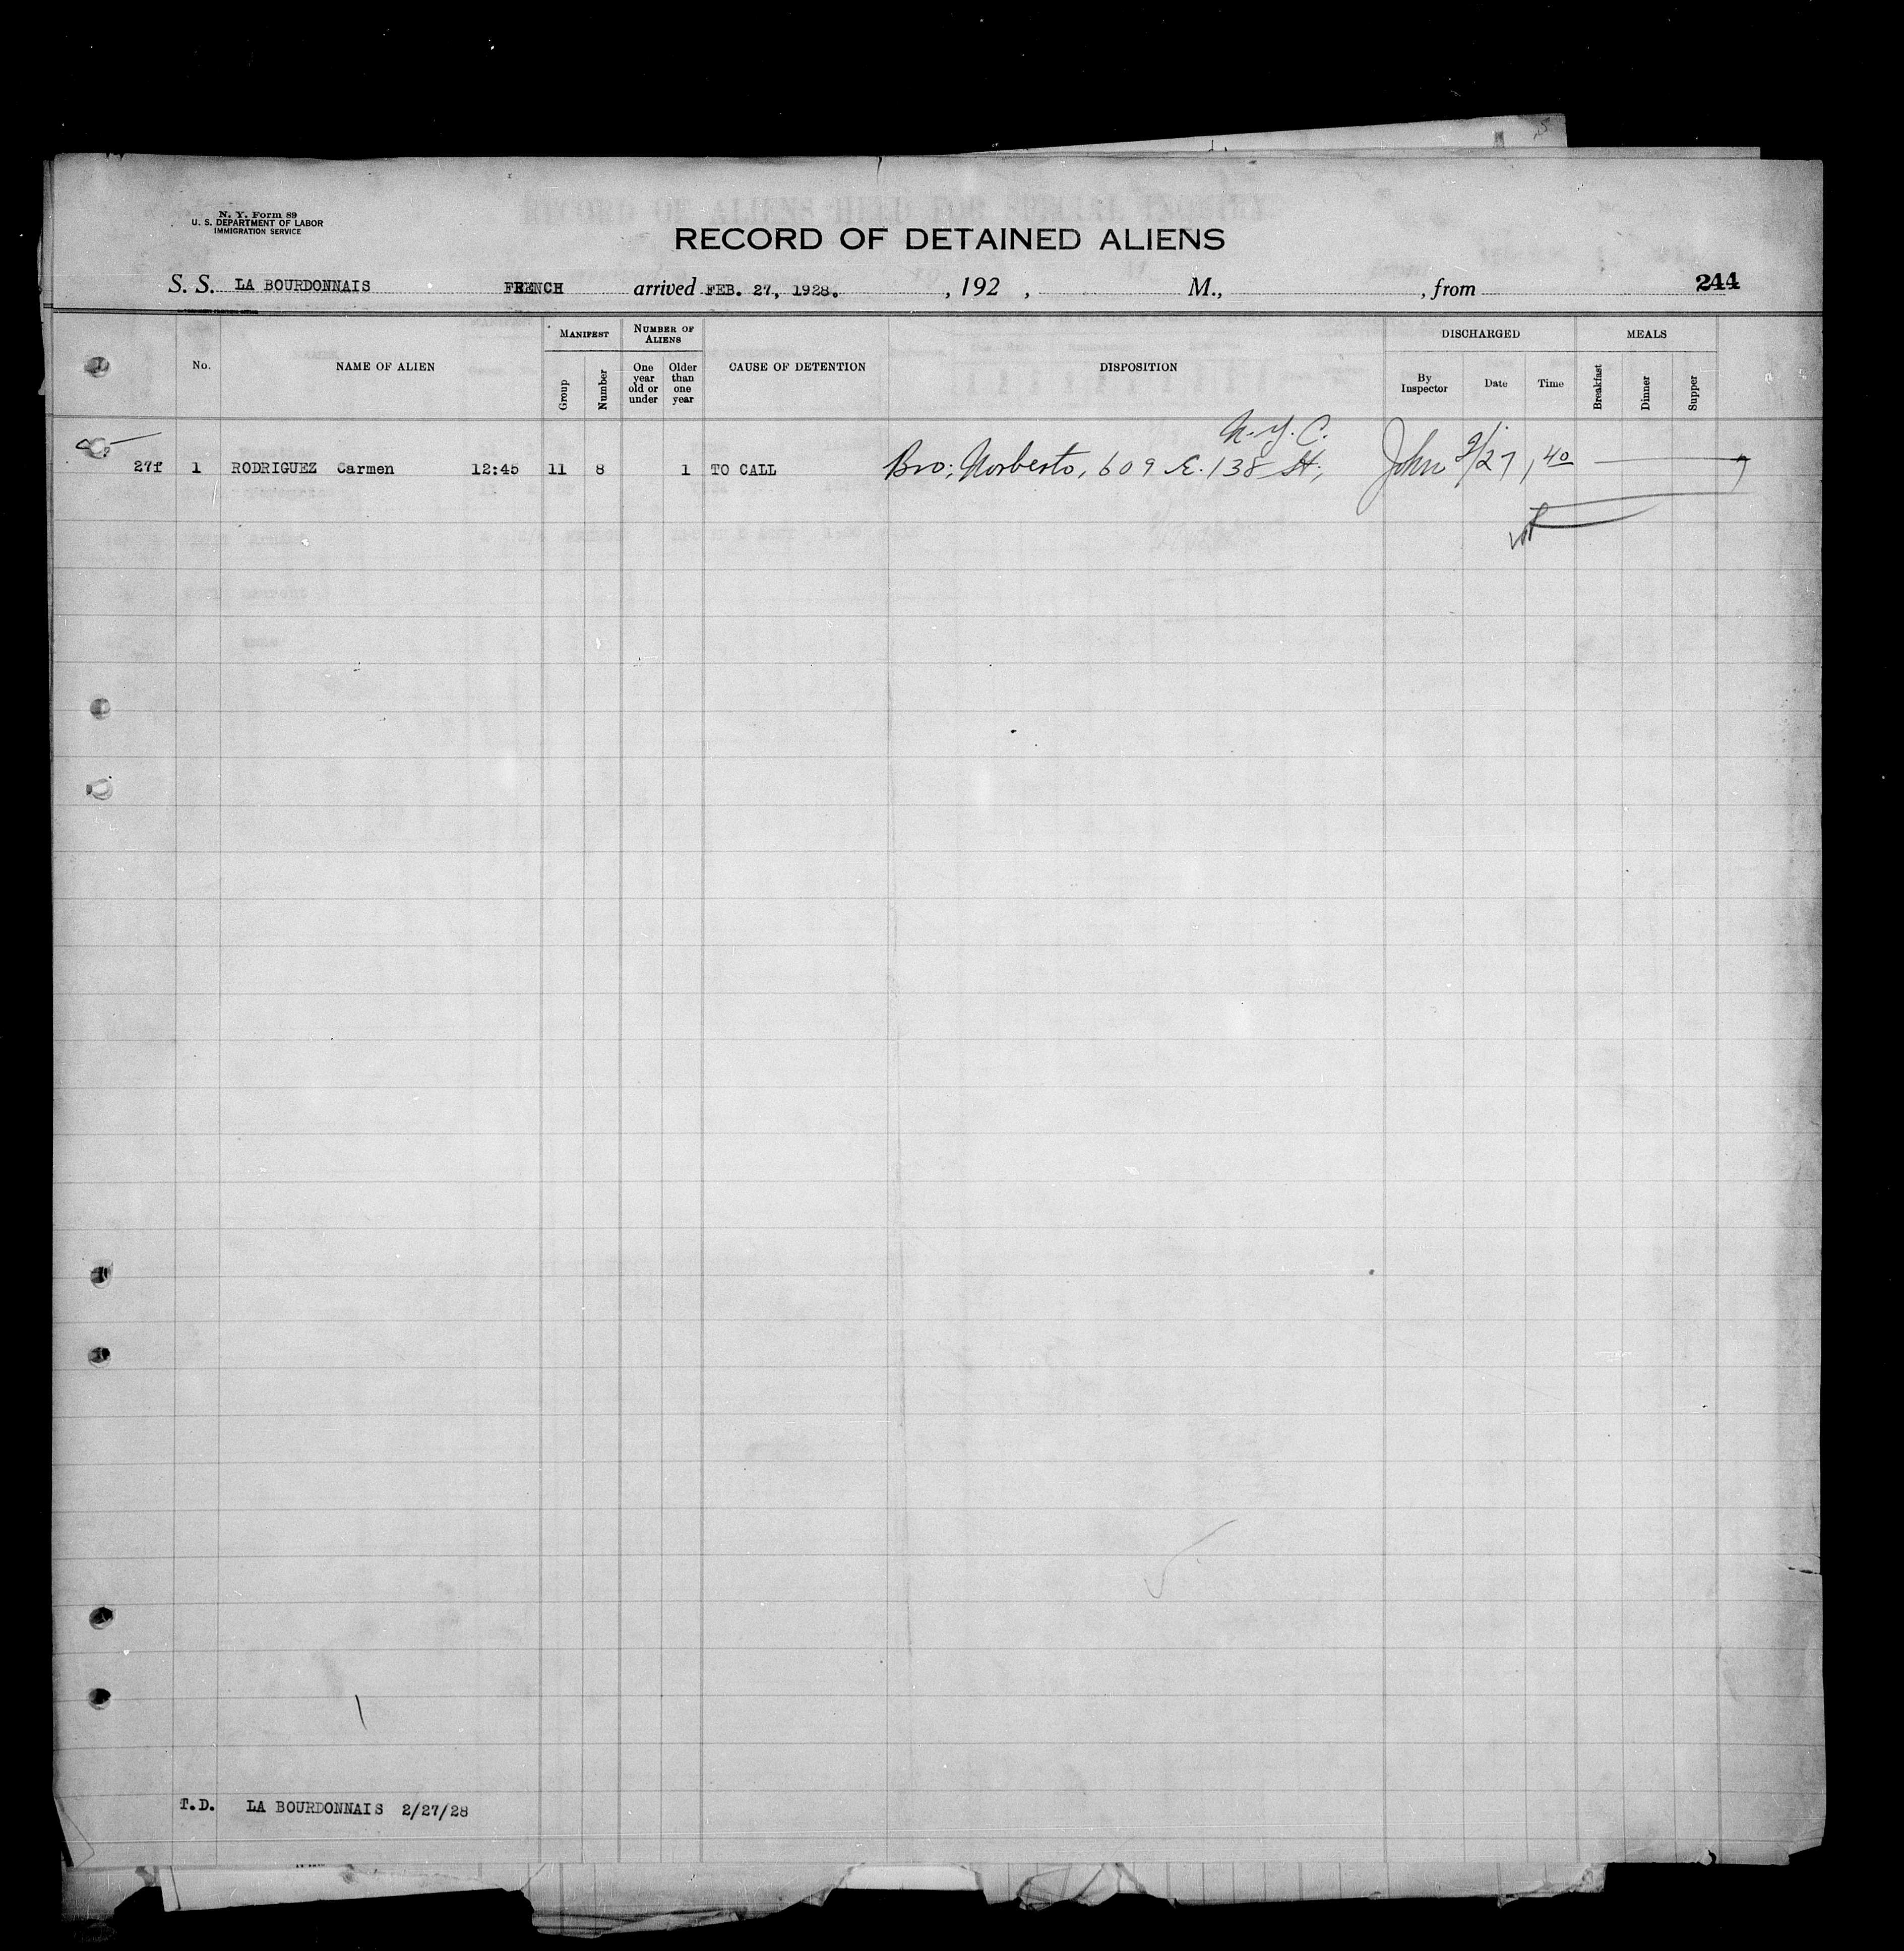 N. Y. Form 89
U. S. DEPARTMENT OF LABOR
IMMIGRATION SERVICE
RECORD OF DETAINED ALIENS
S. S. LA BOURDONNAIS FRENCH arrived FEB. 27, 1928. , 192 , M., , from 244
MANIFEST NUMBER OF ALIENS DISCHARGED MEALS
No. NAME OF ALIEN Group Number One year old or under Older than one year CAUSE OF DETENTION DISPOSITION By Inspector Date Time Breakfast Dinner Supper
N.Y.C.
27f 1 RODRIGUEZ Carmen 12:45 11 8 1 TO CALL Bro; Norberto, 609 E. 138 St; John 2/27 1 40
T.D. LA BOURDONNAIS 2/27/28